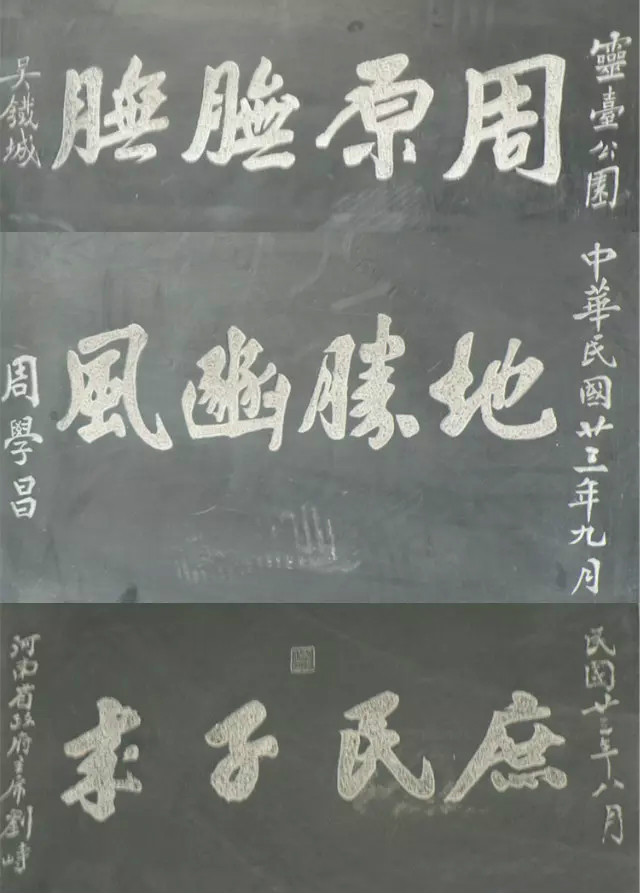 靈臺公園
周原膴膴
吳鐵城
中華民國廿三年九月
地勝豳風
周學昌
民國廿三年八月
庶民子來
河南省政府主席劉峙